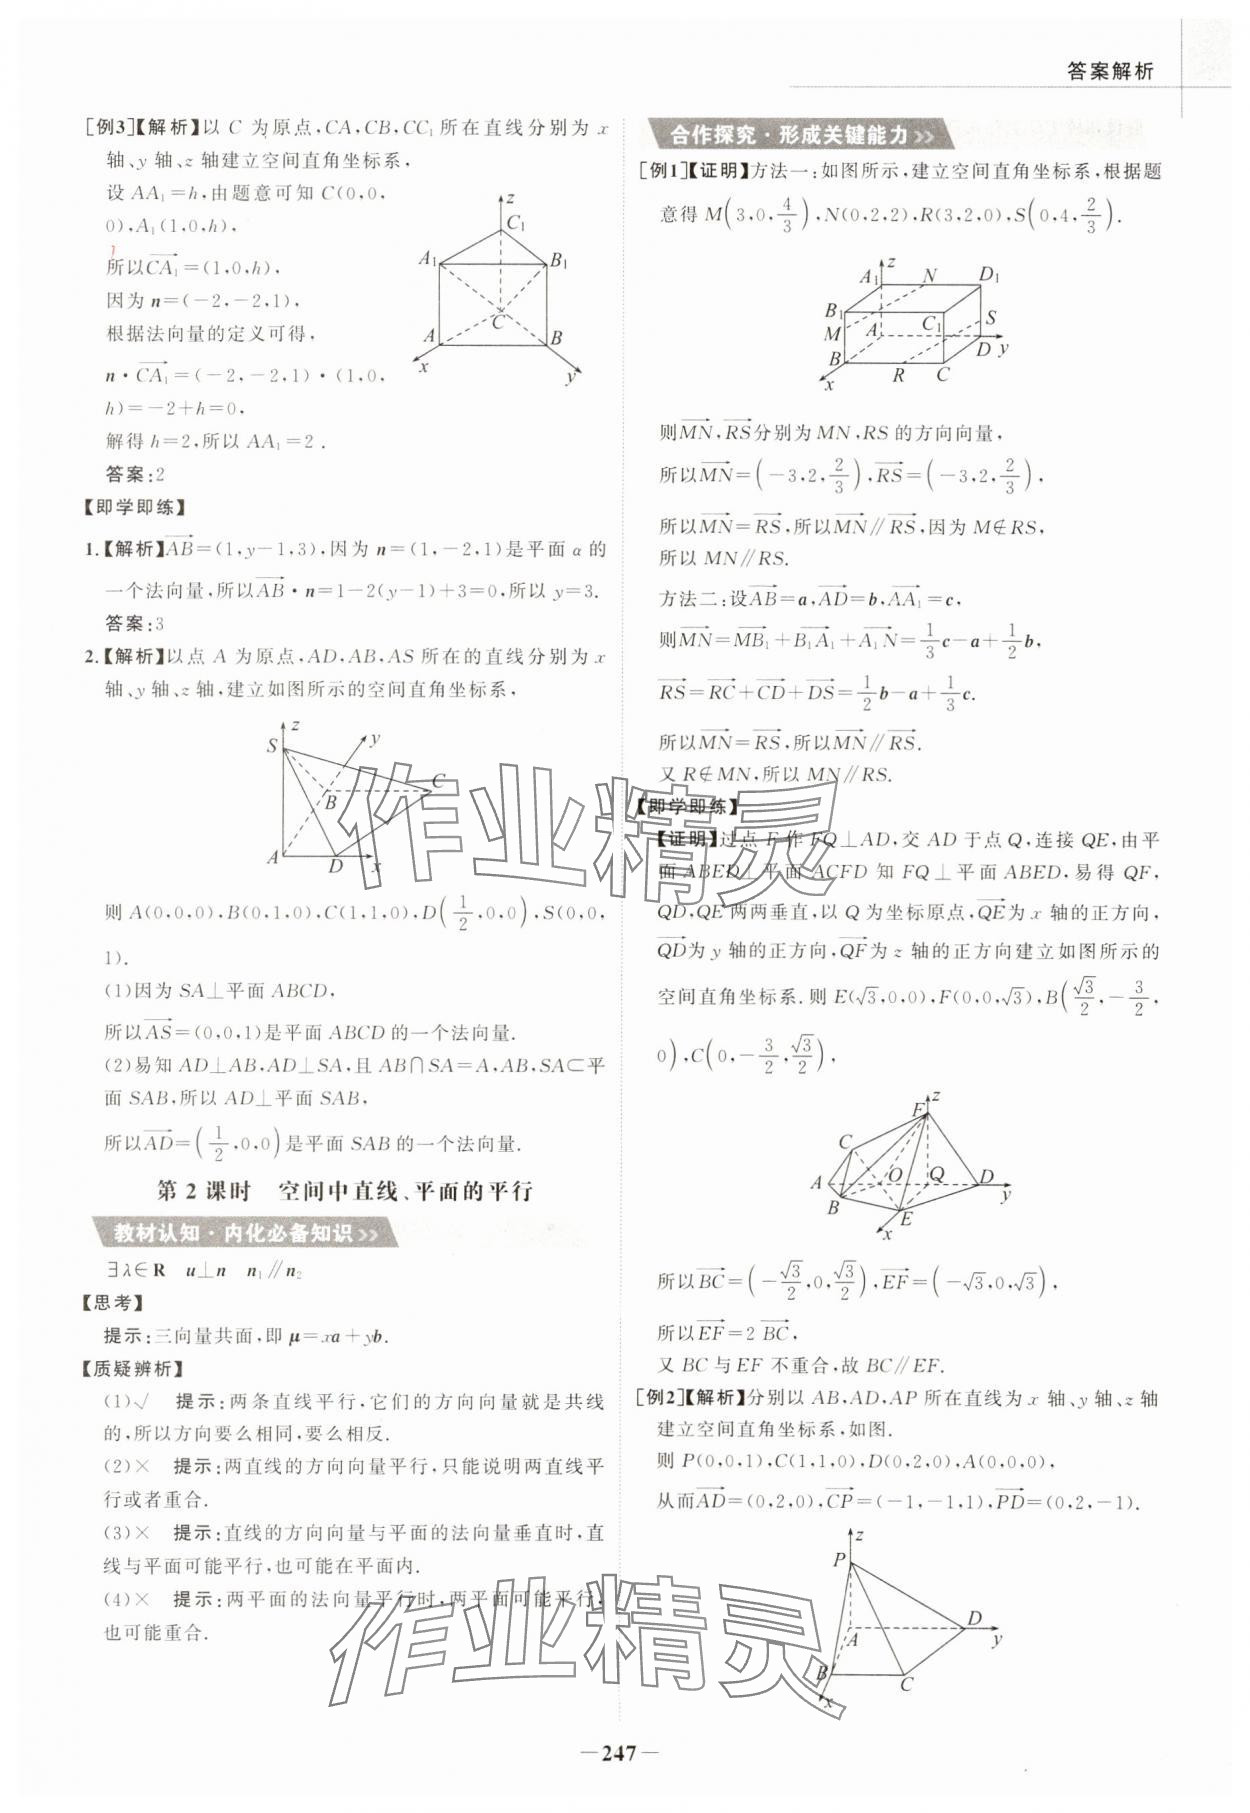 答案解析
[例3]【解析】以 C 为原点,CA,CB,CC₁所在直线分别为 x
轴、y 轴、z 轴建立空间直角坐标系,
设 AA₁=h,由题意可知 C(0,0,
0),A₁(1,0,h),
所以$\overrightarrow{CA_1}$=(1,0,h),
因为 n=(-2,-2,1),
根据法向量的定义可得,
n·$\overrightarrow{CA_1}$=(-2,-2,1)·(1,0,
h)=-2+h=0,
解得 h=2,所以 AA₁=2.
答案:2
z
C₁
A₁
B₁
C
A
B
x
y
【即学即练】
1.【解析】$\overrightarrow{AB}$=(1,y-1,3),因为 n=(1,-2,1)是平面 α 的
一个法向量,所以$\overrightarrow{AB}$·n=1-2(y-1)+3=0,所以 y=3.
答案:3
2.【解析】以点 A 为原点,AD,AB,AS 所在的直线分别为 x
轴、y 轴、z 轴,建立如图所示的空间直角坐标系,
z
S
y
B
C
A
D
x
则 A(0,0,0),B(0,1,0),C(1,1,0),D($\frac{1}{2}$,0,0),S(0,0,
1).
(1)因为 SA⊥平面 ABCD,
所以$\overrightarrow{AS}$=(0,0,1)是平面 ABCD 的一个法向量.
(2)易知 AD⊥AB,AD⊥SA,且 AB∩SA=A,AB,SA⊂平
面 SAB,所以 AD⊥平面 SAB,
所以$\overrightarrow{AD}$=($\frac{1}{2}$,0,0)是平面 SAB 的一个法向量.
第 2 课时 空间中直线、平面的平行
教材认知·内化必备知识>>
∃λ∈R u⊥n n₁∥n₂
【思考】
提示:三向量共面,即 μ=xa+yb.
【质疑辨析】
(1)√ 提示:两条直线平行,它们的方向向量就是共线
的,所以方向要么相同,要么相反.
(2)× 提示:两直线的方向向量平行,只能说明两直线平
行或者重合.
(3)× 提示:直线的方向向量与平面的法向量垂直时,直
线与平面可能平行,也可能在平面内.
(4)× 提示:两平面的法向量平行时,两平面可能平行,
也可能重合.
合作探究·形成关键能力>>
[例1]【证明】方法一:如图所示,建立空间直角坐标系,根据题
意得 M(3,0,$\frac{4}{3}$),N(0,2,2),R(3,2,0),S(0,4,$\frac{2}{3}$).
z
A₁
N
D₁
B₁
M
A
C₁
S
D
y
B
R
C
x
则$\overrightarrow{MN}$,$\overrightarrow{RS}$分别为 MN,RS 的方向向量,
所以$\overrightarrow{MN}$=(-3,2,$\frac{2}{3}$),$\overrightarrow{RS}$=(-3,2,$\frac{2}{3}$),
所以$\overrightarrow{MN}$=$\overrightarrow{RS}$,所以$\overrightarrow{MN}$∥$\overrightarrow{RS}$,因为 M∉RS,
所以 MN∥RS.
方法二:设$\overrightarrow{AB}$=a,$\overrightarrow{AD}$=b,$\overrightarrow{AA_1}$=c,
则$\overrightarrow{MN}$=$\overrightarrow{MB_1}$+$\overrightarrow{B_1A_1}$+$\overrightarrow{A_1N}$=$\frac{1}{3}$c-a+$\frac{1}{2}$b,
$\overrightarrow{RS}$=$\overrightarrow{RC}$+$\overrightarrow{CD}$+$\overrightarrow{DS}$=$\frac{1}{2}$b-a+$\frac{1}{3}$c.
所以$\overrightarrow{MN}$=$\overrightarrow{RS}$,所以$\overrightarrow{MN}$∥$\overrightarrow{RS}$.
又 R∉MN,所以 MN∥RS.
【即学即练】
【证明】过点 F 作 FQ⊥AD,交 AD 于点 Q,连接 QE,由平
面 ABED⊥平面 ACFD 知 FQ⊥平面 ABED,易得 QF,
QD,QE 两两垂直,以 Q 为坐标原点,$\overrightarrow{QE}$为 x 轴的正方向,
$\overrightarrow{QD}$为 y 轴的正方向,$\overrightarrow{QF}$为 z 轴的正方向建立如图所示的
空间直角坐标系.则 E(√3,0,0),F(0,0,√3),B($\frac{\sqrt{3}}{2}$,-$\frac{3}{2}$,
0),C(0,-$\frac{3}{2}$,$\frac{\sqrt{3}}{2}$),
z
F
C
A
O
Q
D
y
B
E
x
所以$\overrightarrow{BC}$=(-$\frac{\sqrt{3}}{2}$,0,$\frac{\sqrt{3}}{2}$),$\overrightarrow{EF}$=(-√3,0,√3),
所以$\overrightarrow{EF}$=2$\overrightarrow{BC}$,
又 BC 与 EF 不重合,故 BC∥EF.
[例2]【解析】分别以 AB,AD,AP 所在直线为 x 轴、y 轴、z 轴
建立空间直角坐标系,如图.
则 P(0,0,1),C(1,1,0),D(0,2,0),A(0,0,0),
从而$\overrightarrow{AD}$=(0,2,0),$\overrightarrow{CP}$=(-1,-1,1),$\overrightarrow{PD}$=(0,2,-1).
z
P
D
A
y
B
C
x
作业精灵
作业精灵
—247—